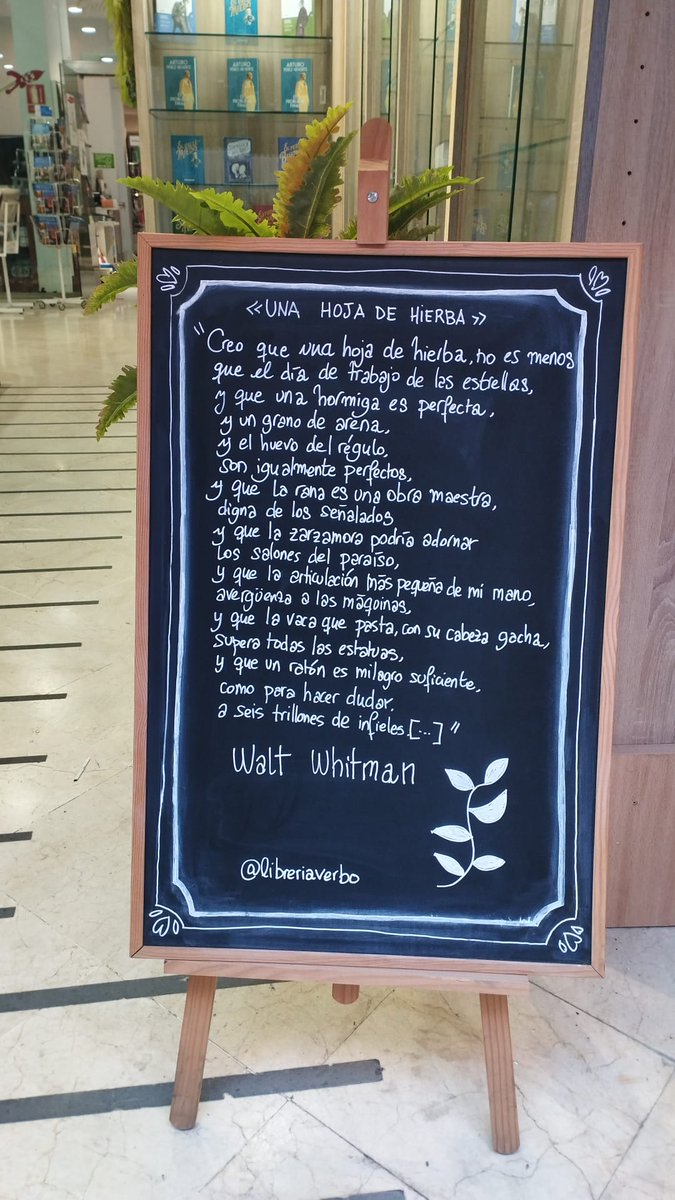 <<UNA HOJA DE HIERBA>>
"Creo que una hoja de hierba, no es menos
que el día de trabajo de las estrellas,
y que una hormiga es perfecta,
y un grano de arena,
y el huevo del régulo,
son igualmente perfectos,
y que la rana es una obra maestra,
digna de los señalados
y que la zarzamora podría adornar
los salones del paraíso,
y que la articulación más pequeña de mi mano,
avergüenza a las máquinas,
y que la vaca que pasta, con su cabeza gacha,
supera todas las estatuas,
y que un ratón es milagro suficiente,
como para hacer dudar,
a seis trillones de infieles [...]"
Walt Whitman
@libreriaverbo
ARTURO
ARTURO
ARTURO